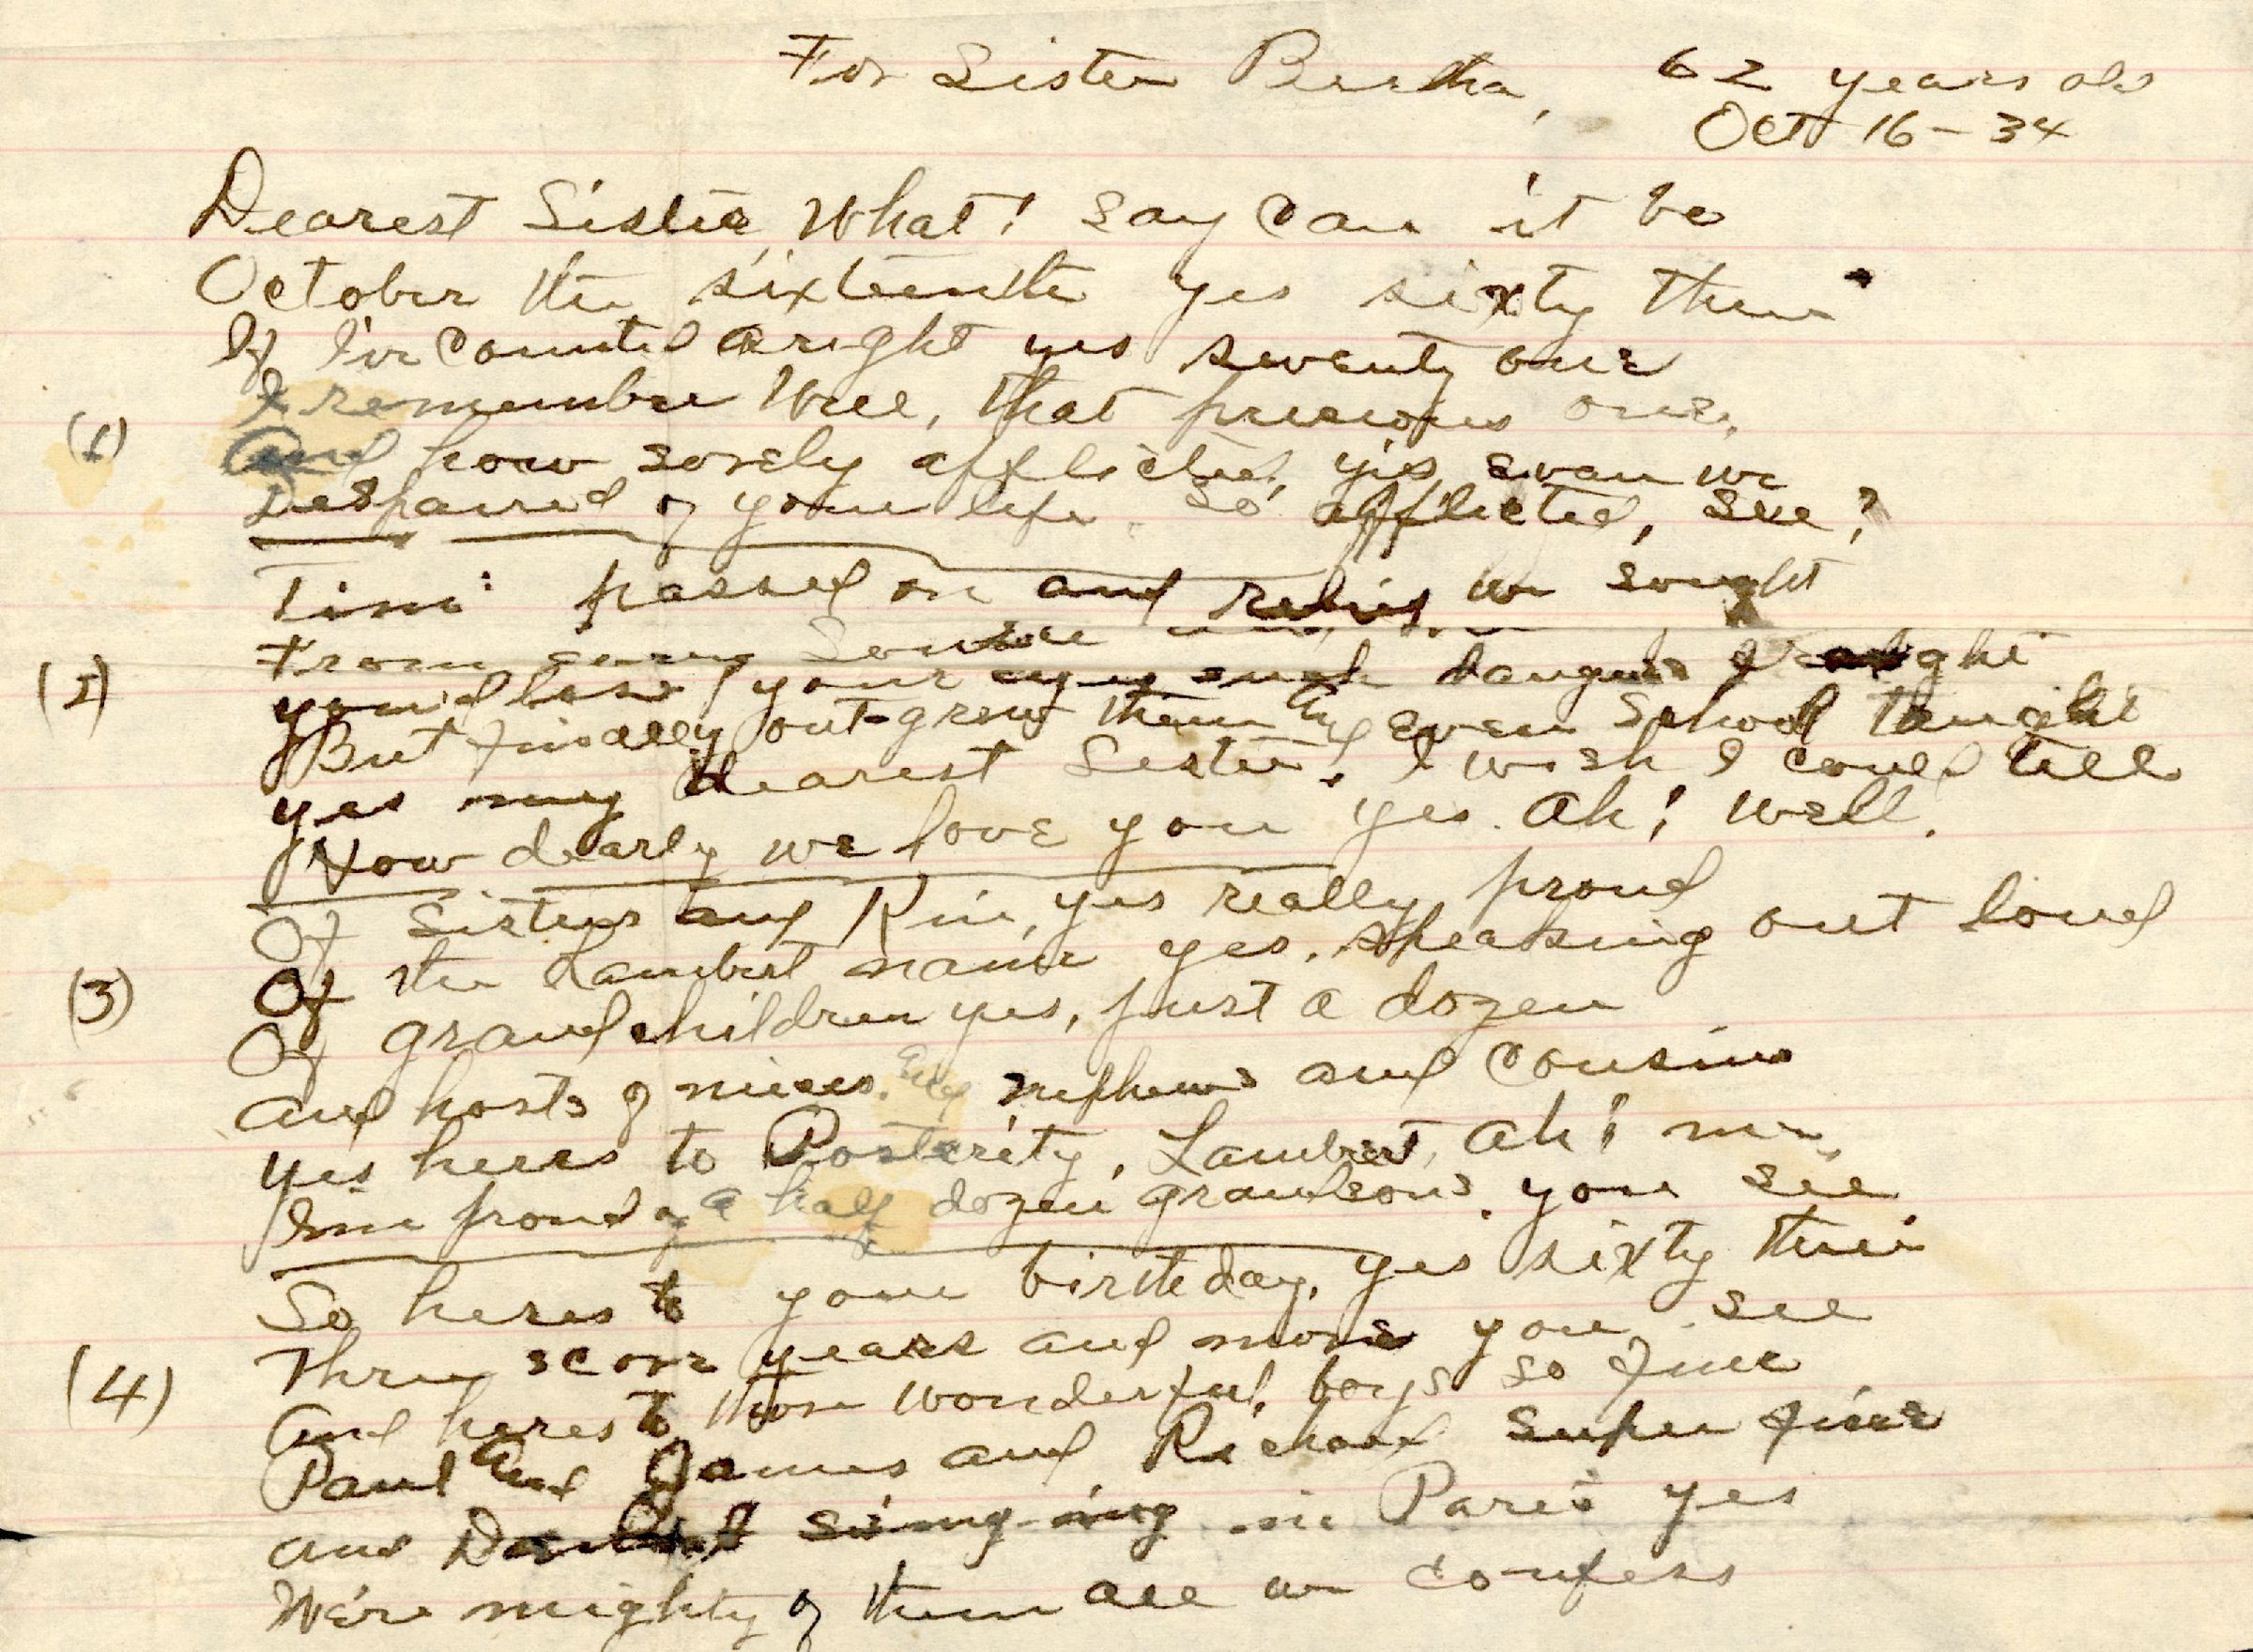 For Sister Bertha, 62 years old
Oct 16 - 34
Dearest Sister, What! say can it be
October the sixteenth yes sixty three
If I've counted aright yes seventy one
I remember well, that precious one,
(1)
And how sorely afflicted, yes, evan we
Despaired of your life. So afflicted, see?
Time passed on and relief we sought
From every source
(2)
you'd lose your eyes such danger fraught
But finally out-grew them And even School taught
yes my dearest Sister! I wish I could tell
How dearly we love you yes. Ah! well.
Of Sisters and Kin, yes really proud
Of the Lambert name yes. speaking out loud
(3)
Of grandchildren yes, just a dozen
and hosts of nieces. And nephews and cousins
yes heres to Posterity, Lambert, Ah! me,
Im proud of a half dozen grandsons. you see
So heres to your birthday, yes sixty three
Three score years and more you see
(4)
And heres to those wonderful, boys so fine
Paul And James and Richard super fine
and singing in Paris yes
We're mighty of them all we confess